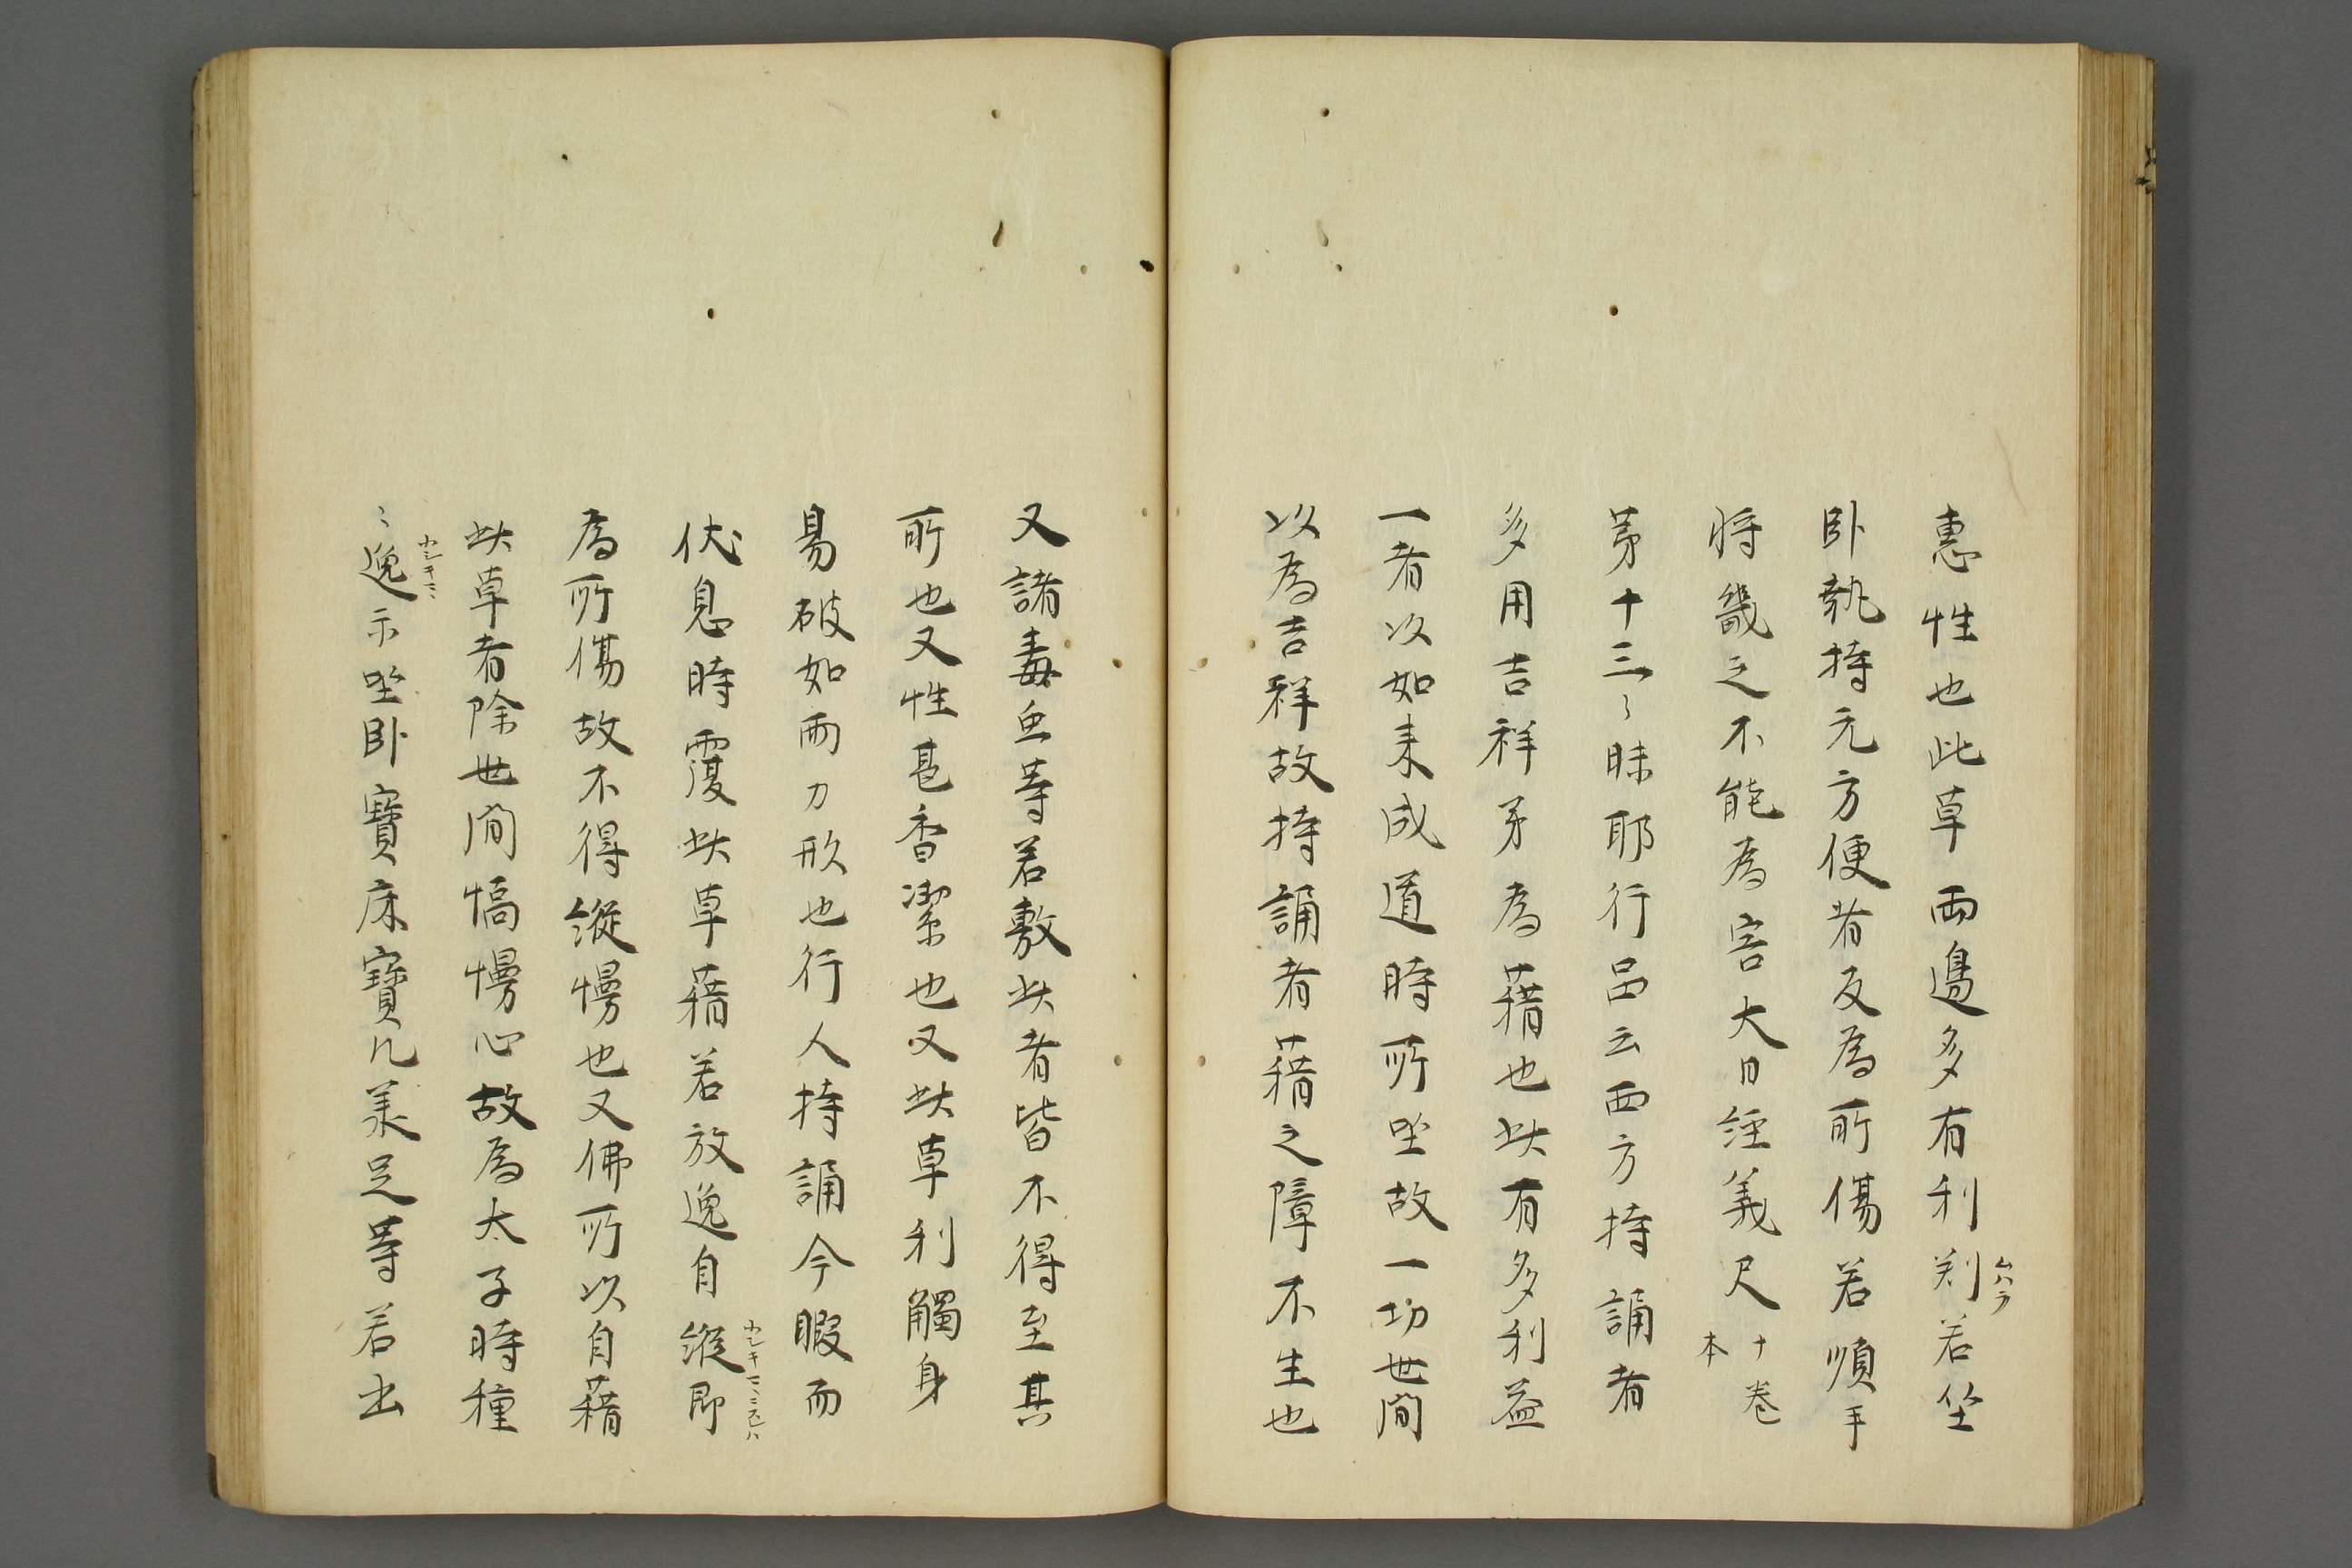 惠性也此草兩邊多有利刺若坐
ムハラ
卧執持无方便者反為所傷若順手
将㡬之不能為害大日經義尺十卷本
苐十三〻昧耶行品云西方持誦者
多用吉祥茅為藉也此有多利益
一者以如来成道時所坐故一切世間
以為吉祥故持誦者藉之障不生也
又諸毒虫等若敷此者皆不得至其
所也又性甚香潔也又此草利觸身
易破如兩刀形也行人持誦今暇而
伏息時覆此草藉若放逸自縱即
為所傷故不得縱慢也又佛所以自藉
此草者除世間憍慢心故為太子時種
〻逸示坐卧寶床寶几羕足等若出